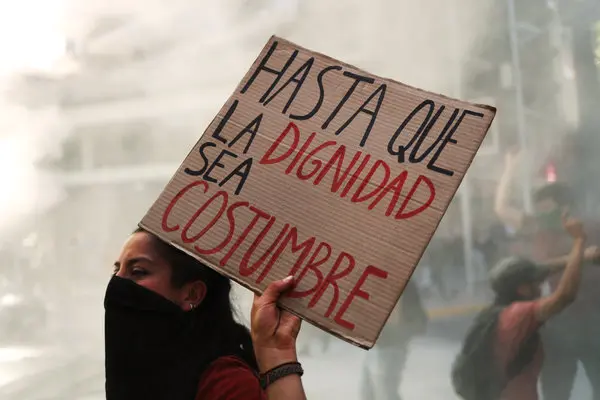 HASTA QUE
LA DIGNIDAD
SEA
COSTUMBRE